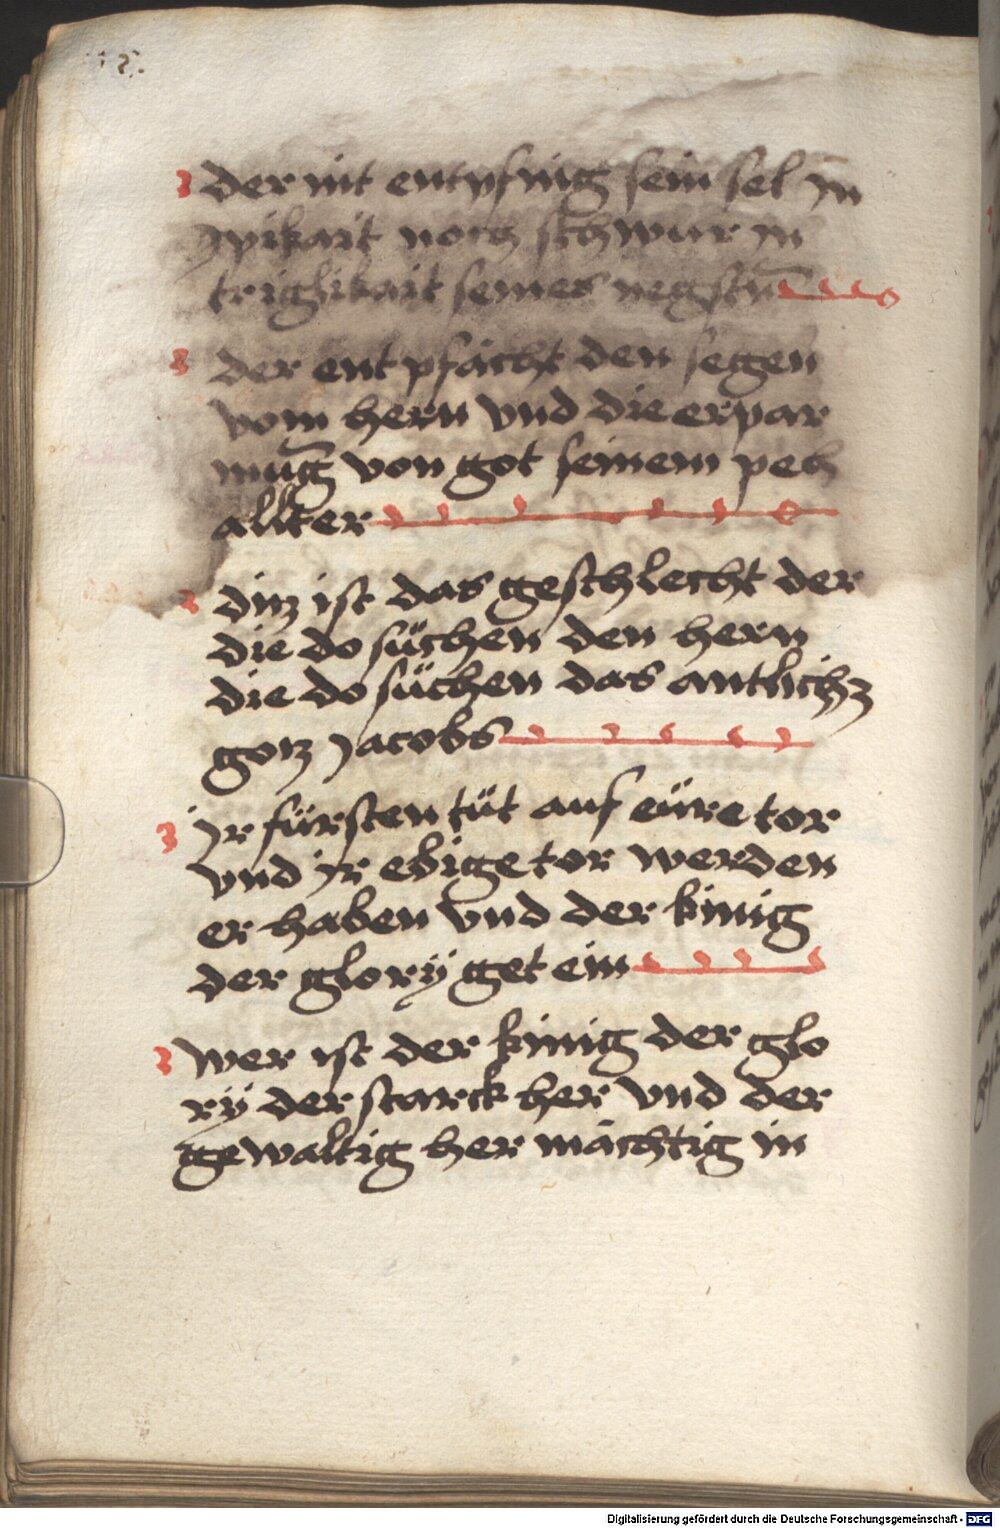 der nit entpfnig sein sel jn
ypikait noch schwur jn
triglikait seines negstn̄
der entpfächt den segen
vom hern vnd die erpar
mūg von got seinem pech
allter
diz ist das geschlecht der
die do süchen den hern
die do süchen das antlichz
gotz Jacobs
jr fürsten tüt auf eüre tor
vnd jr ebige tor werden
er haben vnd der kinig
der glory̎ get ein
wer ist der kinig der glo
ry̎ der starck her vnd der
gewaltig her mächtig in
Digitalisierung gefördert durch die Deutsche Forschungsgemeinschaft - DFG